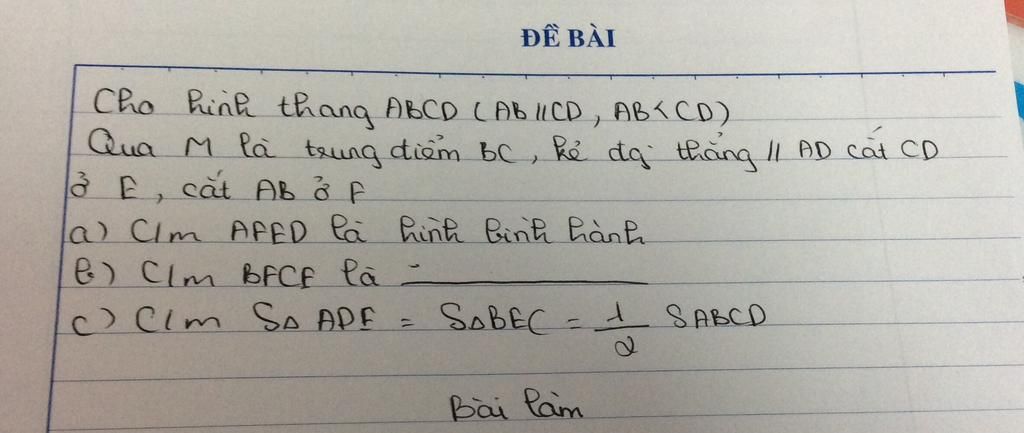 ĐỀ BÀI
Cho hình thang ABCD (AB//CD, AB<CD)
Qua M là trung điểm BC, kẻ đg thẳng // AD cắt CD
ở E, cắt AB ở F
a) C/m AFED là hình bình hành
b) C/m BFCE là -
c) C/m S∆ ADE = S∆BEC = 1/2 SABCD
Bài làm